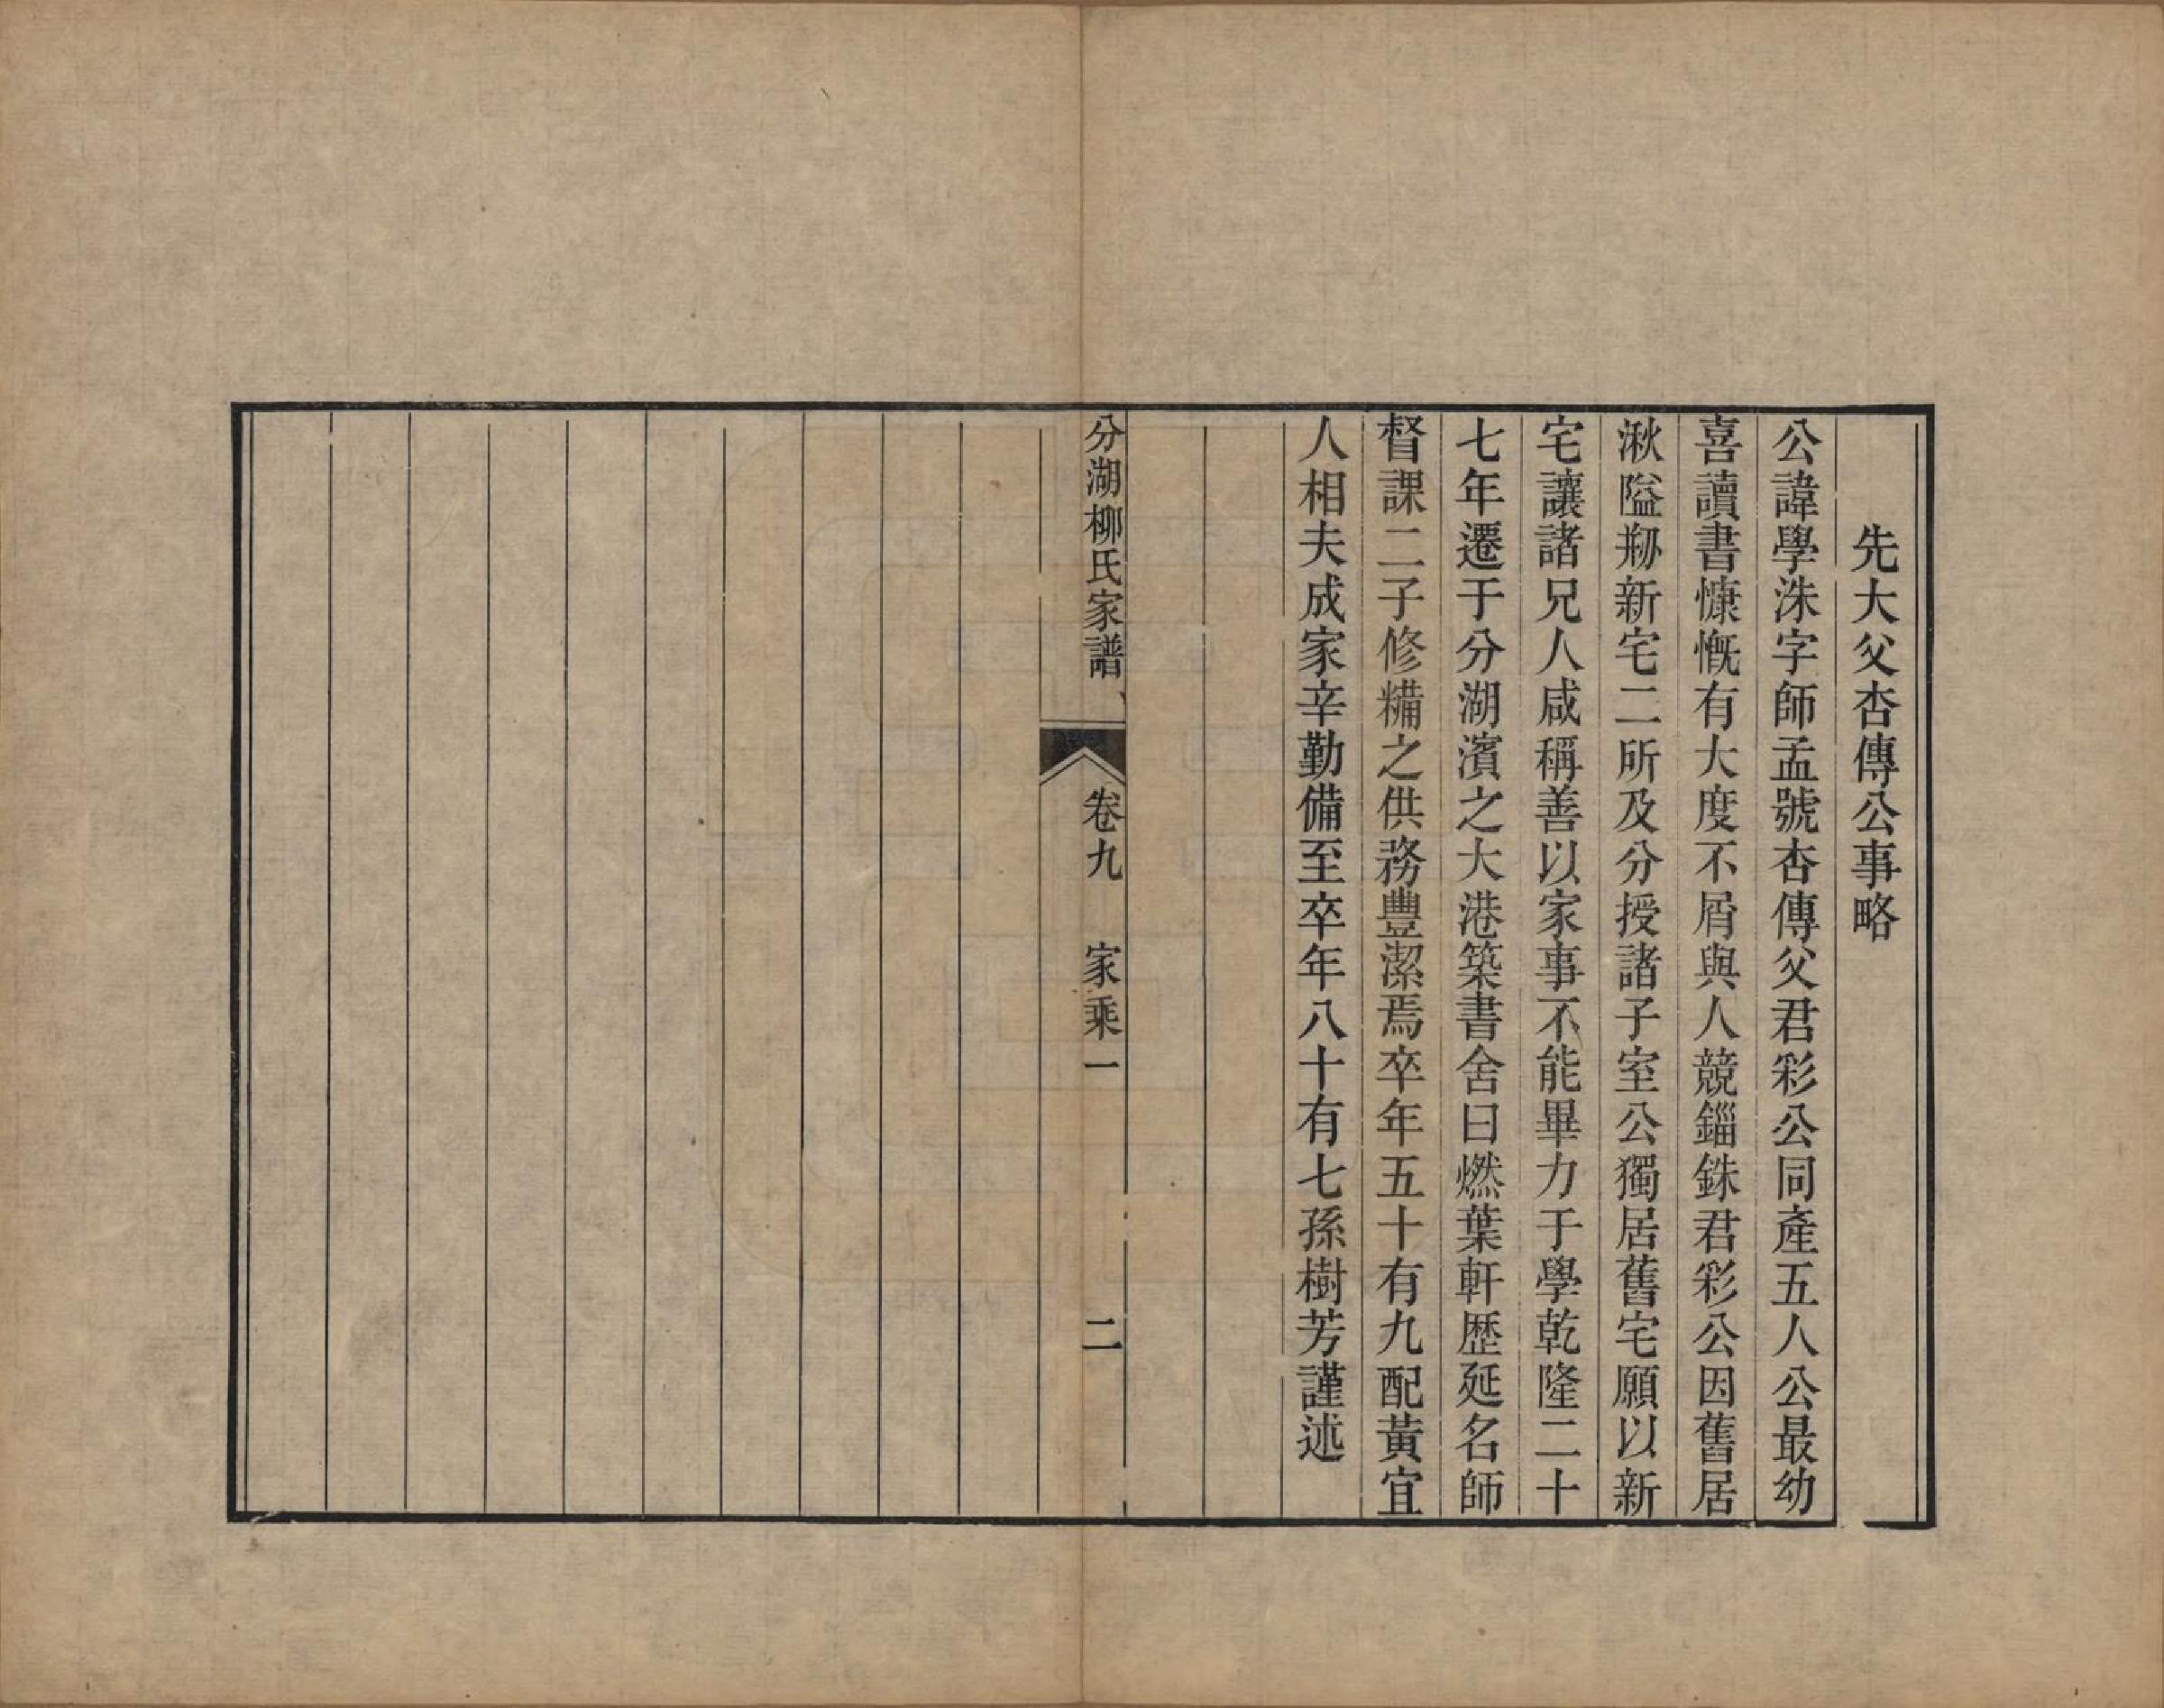 先大父杏傳公事略
公諱學洙字師孟號杏傳父君彩公同產五人公最幼
喜讀書慷慨有大度不屑與人競錙銖君彩公因舊居
湫隘剏新宅二所及分授諸子室公獨居舊宅願以新
宅讓諸兄人咸稱善以家事不能畢力于學乾隆二十
七年遷于分湖濱之大港築書舍曰燃葉軒歷延名師
督課二子修糒之供務豐潔焉卒年五十有九配黃宜
人相夫成家辛勤備至卒年八十有七孫樹芳謹述
分湖柳氏家譜 卷九 家乘一 二